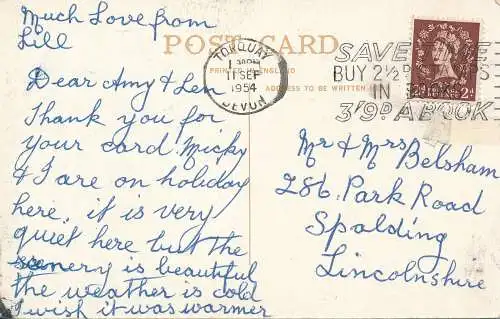 Much Love from
Lill
POST CARD
Dear Amy & Len
Thank you for
your card Micky
& I are on holiday
here, it is very
quiet here but the
scenery is beautiful
the weather is cold
I wish it was warmer
TORQUAY
11 SEP
1954
DEVON
ENGLAND
ADDRESS TO BE WRITTEN
SAVE
BUY 2½
IN
3'9D. A BOOK
2D 2D
Mr & Mrs Belsham
286. Park Road
Spalding
Lincolnshire